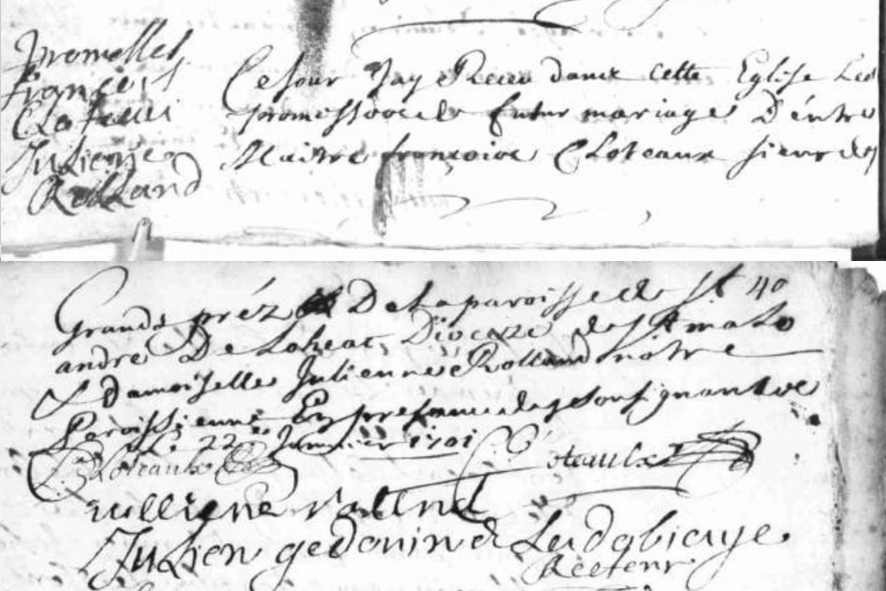 Promesses
François
Cloteaux
Julienne
Rolland
Ce Jour Jay Receu dans cette Eglise Les
promesses de futur mariage D'entre
Maitre françois Cloteaux sieur des
Grands préz De La paroisse de St 40
andré De Loheac, Dioceze de St malo
& Damoiselle Julienne Rolland nôtre
Paroissienne En presence des soussignants ce
22e Janvier 1701
C: Cloteaux Coteaulx
Julliene rolland
Julien gedouin de Ladobiaye
Recteur